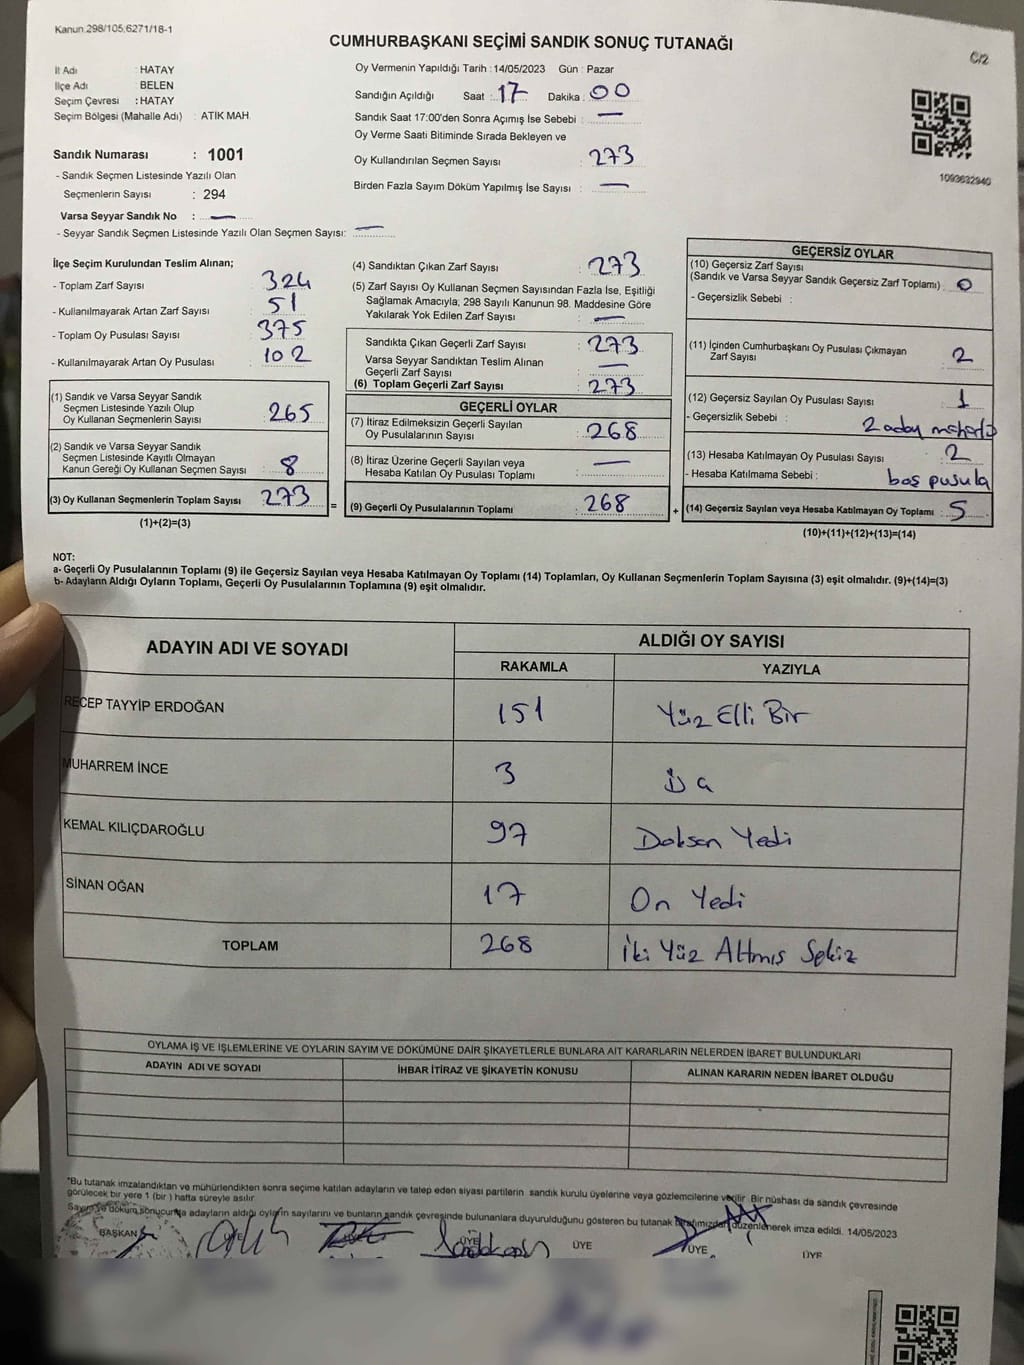 Kanun:298/105;6271/18-1
CUMHURBAŞKANI SEÇİMİ SANDIK SONUÇ TUTANAĞI
C/2
İl Adı : HATAY
İlçe Adı : BELEN
Seçim Çevresi : HATAY
Seçim Bölgesi (Mahalle Adı) : ATİK MAH.
Oy Vermenin Yapıldığı Tarih :14/05/2023 Gün : Pazar
Sandığın Açıldığı Saat : 17 Dakika : 00
Sandık Saat 17:00'den Sonra Açımış İse Sebebi : —
Oy Verme Saati Bitiminde Sırada Bekleyen ve
Oy Kullandırılan Seçmen Sayısı : 273
Birden Fazla Sayım Döküm Yapılmış İse Sayısı : —
1093632940
Sandık Numarası : 1001
- Sandık Seçmen Listesinde Yazılı Olan
Seçmenlerin Sayısı : 294
Varsa Seyyar Sandık No : —
- Seyyar Sandık Seçmen Listesinde Yazılı Olan Seçmen Sayısı: —
İlçe Seçim Kurulundan Teslim Alınan;
- Toplam Zarf Sayısı : 324
- Kullanılmayarak Artan Zarf Sayısı : 51
- Toplam Oy Pusulası Sayısı : 375
- Kullanılmayarak Artan Oy Pusulası : 102
(1) Sandık ve Varsa Seyyar Sandık
Seçmen Listesinde Yazılı Olup
Oy Kullanan Seçmenlerin Sayısı : 265
(2) Sandık ve Varsa Seyyar Sandık
Seçmen Listesinde Kayıtlı Olmayan
Kanun Gereği Oy Kullanan Seçmen Sayısı : 8
(3) Oy Kullanan Seçmenlerin Toplam Sayısı : 273
(1)+(2)=(3)
=
(4) Sandıktan Çıkan Zarf Sayısı : 273
(5) Zarf Sayısı Oy Kullanan Seçmen Sayısından Fazla İse, Eşitliği
Sağlamak Amacıyla; 298 Sayılı Kanunun 98. Maddesine Göre
Yakılarak Yok Edilen Zarf Sayısı : —
Sandıkta Çıkan Geçerli Zarf Sayısı : 273
Varsa Seyyar Sandıktan Teslim Alınan
Geçerli Zarf Sayısı : —
(6) Toplam Geçerli Zarf Sayısı : 273
GEÇERLİ OYLAR
(7) İtiraz Edilmeksizin Geçerli Sayılan
Oy Pusulalarının Sayısı : 268
(8) İtiraz Üzerine Geçerli Sayılan veya
Hesaba Katılan Oy Pusulası Toplamı : —
(9) Geçerli Oy Pusulalarının Toplamı : 268
+
GEÇERSİZ OYLAR
(10) Geçersiz Zarf Sayısı
(Sandık ve Varsa Seyyar Sandık Geçersiz Zarf Toplamı) : 0
- Geçersizlik Sebebi :
(11) İçinden Cumhurbaşkanı Oy Pusulası Çıkmayan
Zarf Sayısı : 2
(12) Geçersiz Sayılan Oy Pusulası Sayısı : 1
- Geçersizlik Sebebi : 2 aday
(13) Hesaba Katılmayan Oy Pusulası Sayısı : 2
- Hesaba Katılmama Sebebi : boş pusula
(14) Geçersiz Sayılan veya Hesaba Katılmayan Oy Toplamı : 5
(10)+(11)+(12)+(13)=(14)
NOT:
a- Geçerli Oy Pusulalarının Toplamı (9) ile Geçersiz Sayılan veya Hesaba Katılmayan Oy Toplamı (14) Toplamları, Oy Kullanan Seçmenlerin Toplam Sayısına (3) eşit olmalıdır. (9)+(14)=(3)
b- Adayların Aldığı Oyların Toplamı, Geçerli Oy Pusulalarının Toplamına (9) eşit olmalıdır.
ADAYIN ADI VE SOYADI
ALDIĞI OY SAYISI
RAKAMLA YAZIYLA
RECEP TAYYİP ERDOĞAN 151 Yüz Elli Bir
MUHARREM İNCE 3
KEMAL KILIÇDAROĞLU 97 Doksan Yedi
SİNAN OĞAN 17 On Yedi
TOPLAM 268 İki Yüz Altmış Sekiz
OYLAMA İŞ VE İŞLEMLERİNE VE OYLARIN SAYIM VE DÖKÜMÜNE DAİR ŞİKAYETLERLE BUNLARA AİT KARARLARIN NELERDEN İBARET BULUNDUKLARI
ADAYIN ADI VE SOYADI İHBAR İTİRAZ VE ŞİKAYETİN KONUSU ALINAN KARARIN NEDEN İBARET OLDUĞU
"Bu tutanak imzalandıktan ve mühürlendikten sonra seçime katılan adayların ve talep eden siyasi partilerin sandık kurulu üyelerine veya gözlemcilerine verilir. Bir nüshası da sandık çevresinde
görülecek bir yere 1 (bir ) hafta süreyle asılır.
Sayım ve döküm sonucunda adayların aldığı oyların sayılarını ve bunların sandık çevresinde bulunanlara duyurulduğunu gösteren bu tutanak tarafımızdan düzenlenerek imza edildi. 14/05/2023
BAŞKAN ÜYE ÜYE ÜYE ÜYE ÜYE